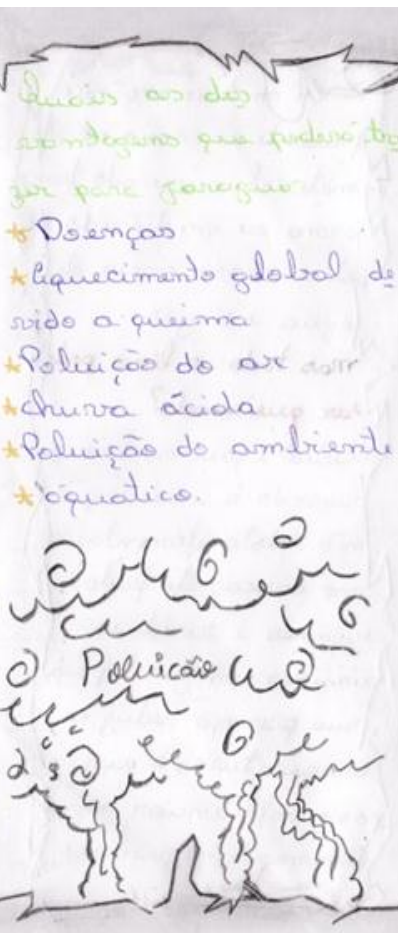 Quais as des
vantagens que poderá tra
zer para Jaraguá
* Doenças
* Aquecimento global de
vido a queima
* Poluição do ar
* chuva ácida
* Poluição do ambiente
* aquático.
Poluição